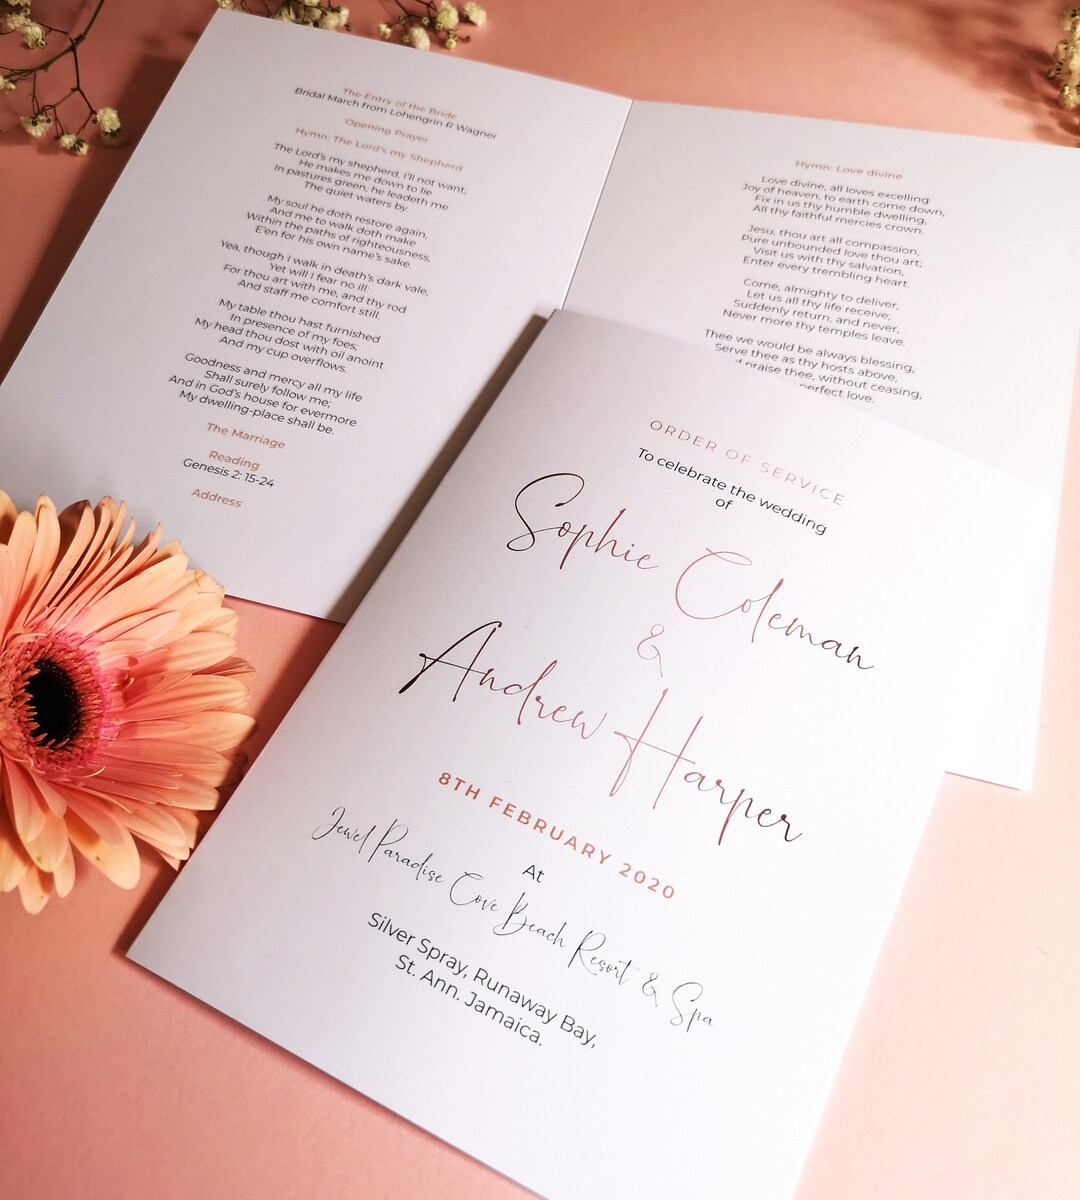 The Entry of the Bride
Bridal March from Lohengrin R Wagner
Opening Prayer
Hymn: The Lord's my Shepherd
The Lord's my shepherd, I'll not want;
He makes me down to lie
In pastures green; he leadeth me
The quiet waters by.
My soul he doth restore again,
And me to walk doth make
Within the paths of righteousness,
E'en for his own name's sake.
Yea, though I walk in death's dark vale,
Yet will I fear no ill:
For thou art with me, and thy rod
And staff me comfort still.
My table thou hast furnished
In presence of my foes;
My head thou dost with oil anoint
And my cup overflows.
Goodness and mercy all my life
Shall surely follow me;
And in God's house for evermore
My dwelling-place shall be.
The Marriage
Reading
Genesis 2: 15-24
Address
Hymn: Love divine
Love divine, all loves excelling
Joy of heaven, to earth come down,
Fix in us thy humble dwelling,
All thy faithful mercies crown.
Jesu, thou art all compassion,
Pure unbounded love thou art;
Visit us with thy salvation,
Enter every trembling heart.
Come, almighty to deliver,
Let us all thy life receive;
Suddenly return, and never,
Never more thy temples leave.
Thee we would be always blessing,
Serve thee as thy hosts above,
praise thee, without ceasing,
perfect love.
ORDER OF SERVICE
To celebrate the wedding
of
Sophie Coleman
&
Andrew Harper
8TH FEBRUARY 2020
At
Jewel Paradise Cove Beach Resort & Spa
Silver Spray, Runaway Bay,
St. Ann. Jamaica.